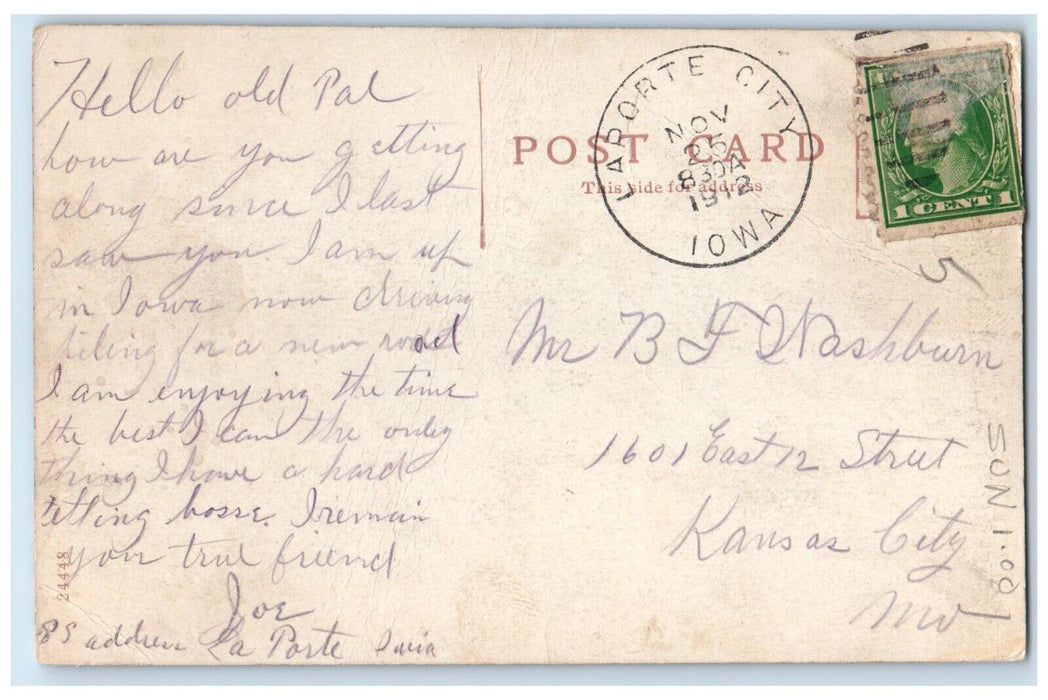 Hello old Pal
how are you getting
along since I last
saw you. I am up
in Iowa now driving
tiling for a new road
I am enjoying the time
the best I can the onley
thing I have a hard
bosse. I remain
your true friend
Joe
PS address La Porte Iowa
24448
POST CARD
This side for address
LAPORTE CITY
NOV
25
830A
1912
IOWA
1 CENT 1
5
Mr B F Washburn
1601 East 12 Street
Kansas City
Mo
SUN 1.00